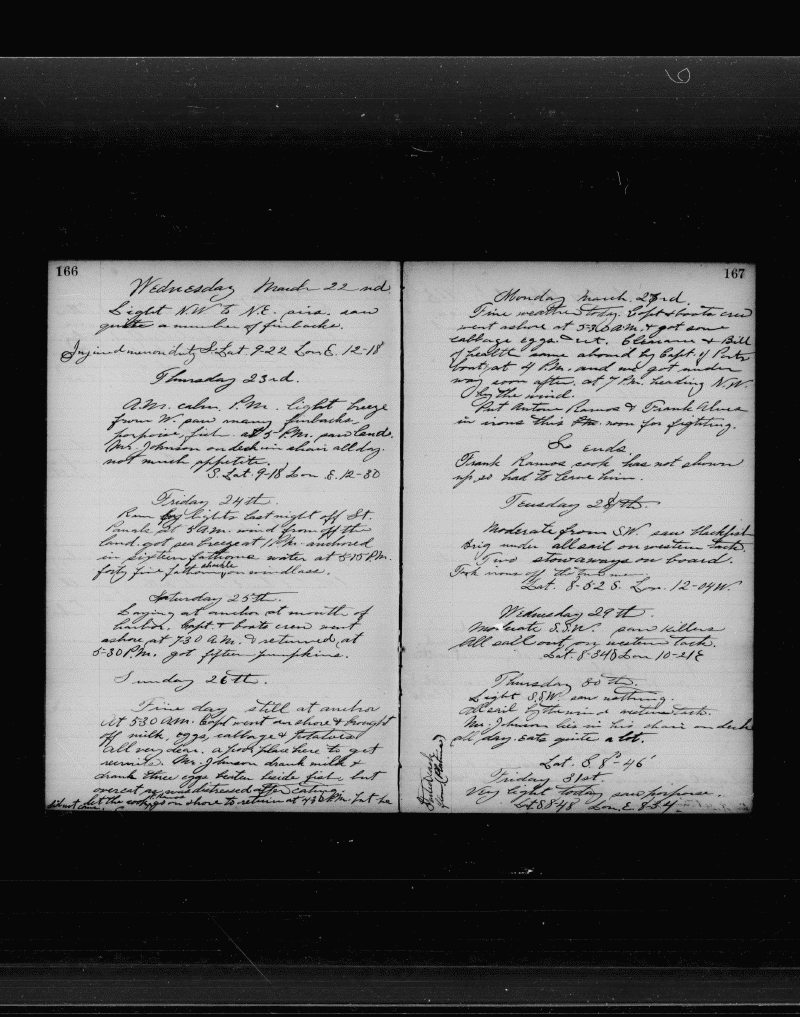 6
166
Wednesday March 22nd
Light NW to NE. airs. saw
quite a number of finbacks.
Injured men on duty S. Lat. 9-22 Lon E. 12-18
Thursday 23rd.
A.M. calm. P.M. light breeze
from W. saw many finbacks,
porpoise, fish. at 5 P.M. saw land.
Mr. Johnson on deck in chair all day.
not much appetite.
S. Lat 9-18 Lon E. 12-30
Friday 24th.
Ran by lights last night off St.
Pauls at 5 a.m. wind from off the
land. got sea breeze at 1 P.M. anchored
in sixteen fathoms water at 5-15 P.M.
forty five fathom shackle on windlass.
Saturday 25th.
Laying at anchor at mouth of
harbor. Capt. & boats crew went
ashore at 7.30 A.M. & returned at
5-30 P.M. got fifteen pumpkins.
Sunday 26th.
Fine day still at anchor
At 5.30 A.M. Capt went on shore & brought
off milk, eggs, cabbage & potatoes
all very dear. a poor place here to get
recruits. Mr. Johnson drank milk &
drank three eggs beside fish, but
overeat & was distressed after eating.
let the cook go on shore to return at 4.30 P.M. but he
did not come.
167
Monday March. 23rd.
Fine weather today. Capt & boats crew
went ashore at 5-30 A.M. & got some
cabbage eggs. Clearance & Bill
of health came aboard by Capt. of Ports
boat, at 4 P.M. and we got under
way soon after. at 7 P.M. heading N.W.
by the wind.
Put Antone Ramos & Frank Alves
in irons this noon for fighting.
So ends.
Frank Ramos cook has not shown
up, so had to leave him.
Tuesday 28th.
Moderate from SW. saw blackfish
Brig under all sail on western tack.
Two stowaways on board.
Took irons off the two men
Lat. 8-52 S. Lon. 12-04 W.
Wednesday 29th.
Moderate S.S.W. saw killers
All sail out, on western tack.
Lat. 8-34 S Lon 10-21 E
Thursday 30th.
Light S.S.W. saw nothing.
All sail by the wind western tack.
Mr. Johnson lies in his chair on deck
all day. Eats quite a lot.
Lat. S 8°-46'
Friday 31st.
Very light today saw porpoise.
Lat S 8-48 Lon. E 8-54